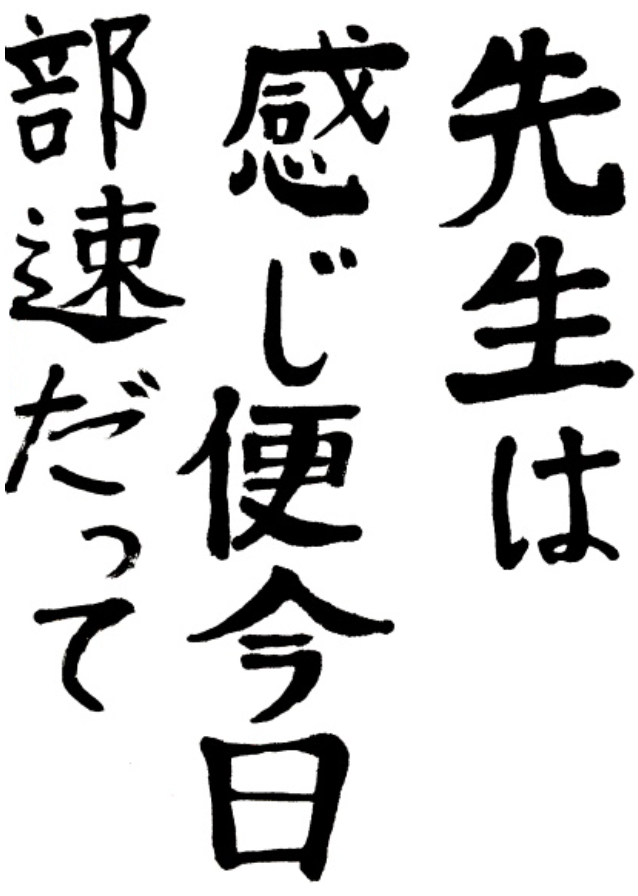 先生は
感じ便今日
部速だって